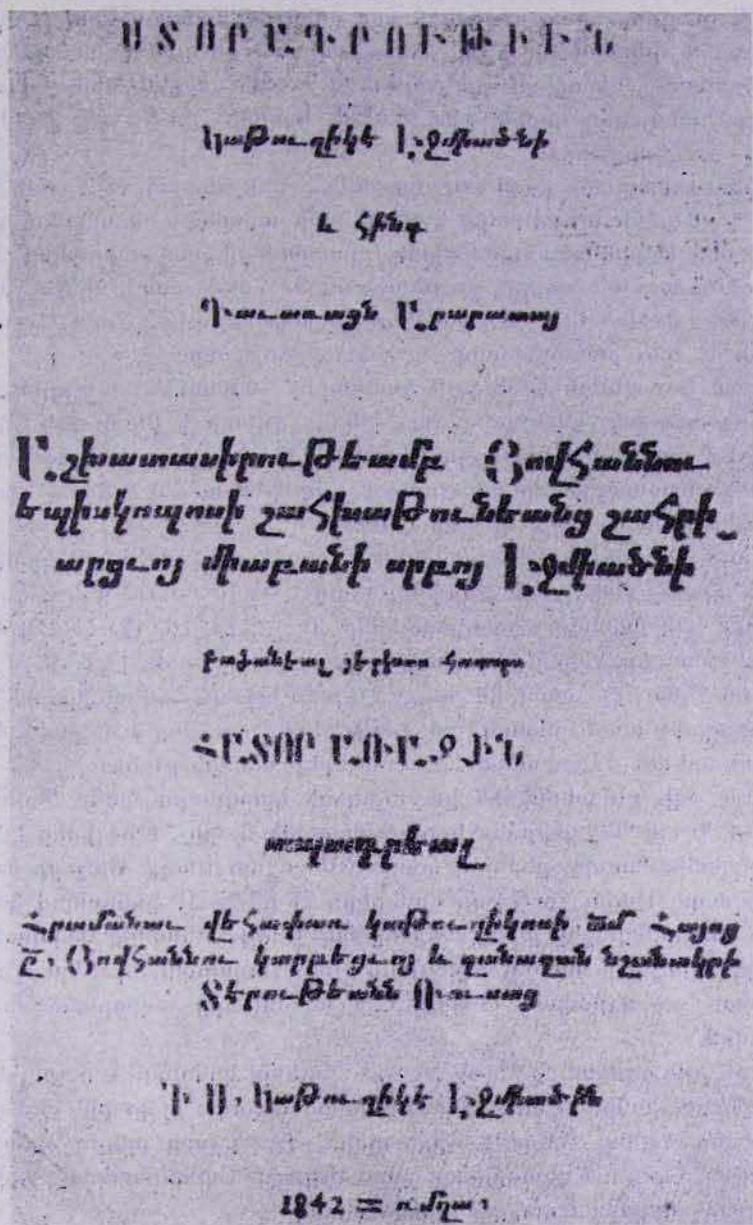 ՍՏՈՐԱԳՐՈՒԹԻՒՆ
Կաթուղիկէ Էջմիածնի
և հինգ
Գաւառացն Արարատայ
Աշխատասիրութեամբ Յովհաննու
եպիսկոպոսի շահխաթունեանց շահրի֊
արցւոյ միաբանի սրբոյ Էջմիածնի
բաժանեալ յերկուս հատորս
ՀԱՏՈՐ ԱՌԱՋԻՆ
տպագրեալ
Հրամանաւ վեհափառ կաթուղիկոսի ամ հայոց
Ը, Յովհաննու կարբեցւոյ և զանազան նշանակրի
Տէրութեանն Ռուսաց
Ի Ս, Կաթուղիկէ Էջմիածին
1842 = ռմղա,